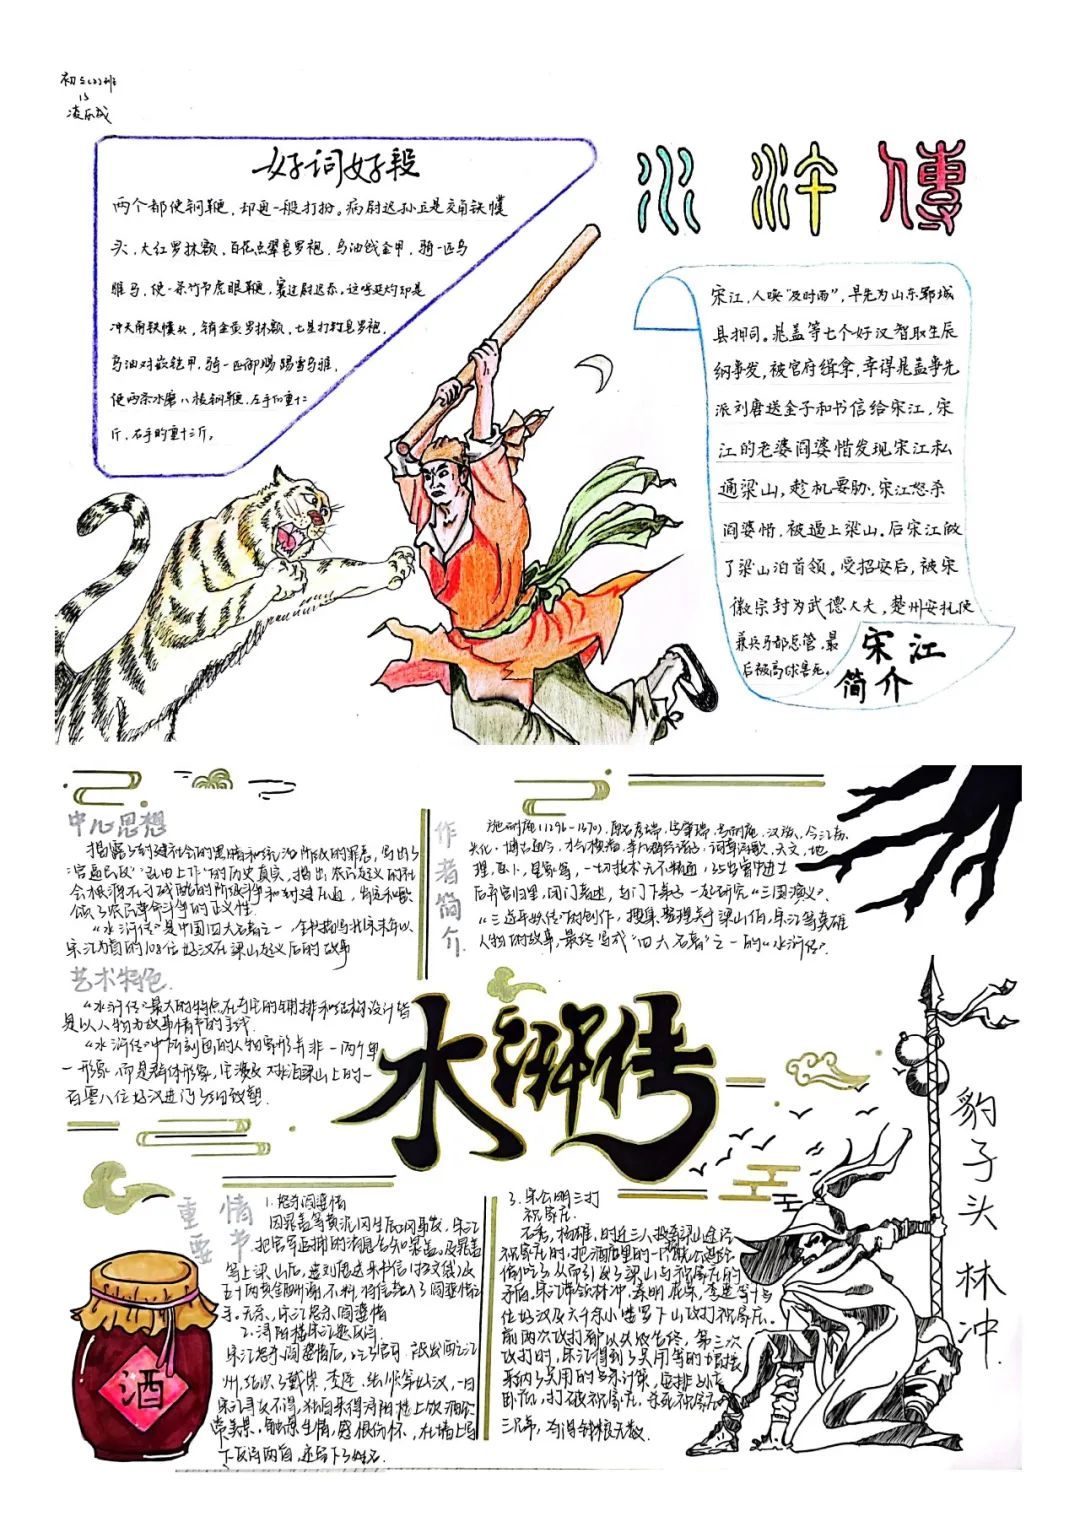 初2(2)班
13
凌乐成
水浒傳
好词好段
两个都使钢鞭,却更一般打扮。病尉迟孙立是交角铁幞
头,大红罗抹额,百花点翠皂罗袍,乌油戗金甲,骑一匹乌
骓马,使一条竹节虎眼鞭,赛过尉迟恭。这呼延灼却是
冲天角铁幞头,销金黄罗抹额,七星打钉皂罗袍,
乌油对嵌铠甲,骑一匹御赐踢雪乌骓,
使两条水磨八棱钢鞭,左手的重十二
斤,右手的重十三斤。
宋江,人唤“及时雨”,早先为山东郓城
县押司。晁盖等七个好汉智取生辰
纲事发,被官府缉拿,幸得晁盖事先
派刘唐送金子和书信给宋江,宋
江的老婆阎婆惜发现宋江私
通梁山,趁机要胁,宋江怒杀
阎婆惜,被逼上梁山。后宋江做
了梁山泊首领。受招安后,被宋
徽宗封为武德大夫,楚州安抚使
兼兵马都总管,最
后被高俅害死。
宋江
简介
中心思想
揭露了封建社会的黑暗和统治阶级的罪恶,写出了
“官逼民反”“乱由上作”的历史真实,指出,农民起义的社
会根源在于残酷的阶级斗争和封建压迫,肯定和歌
颂了农民革命斗争的正义性.
“水浒传”是中国四大名著之一,全书描写北宋末年以
宋江为首的108位好汉在梁山起义后的故事
艺术特色
“水浒传”最大的特点在于它的铺排和结构设计皆
是以人物为故事情节的主线.
“水浒传”中所刻画的人物形象并非一两个单
一形象,而是群体形象,它涉及对水泊梁山上的一
百零八位好汉进行了细致塑.
作者简介
施耐庵(1296-1370),原名彦端,字肇瑞,号耐庵,汉族,今江苏
兴化.博古通今,才气横溢,
词章诗歌、天文、地
理、医卜、星象等,一切技术无不精通,35岁曾中进士
后弃官归里,闭门著述,与门下弟子一起研究“三国演义”、
“三遂平妖传”的创作,搜集整理关于梁山伯,宋江等英雄
人物的故事,最终写成“四大名著”之一的“水浒传”.
水浒传
豹子头 林冲
重要情节
1.怒杀阎婆惜
因晁盖等黄泥冈生辰纲事发,宋江
把官军追捕的消息告知晁盖。及晁盖
等上梁山后,遣刘唐送来书信(招文袋)及
五十两黄金酬谢,不料,书信被入了阎婆惜之
手.无奈,宋江怒杀阎婆惜
2.浔阳楼宋江题反诗
宋江怒杀阎婆惜后,
发配江
州,结识了戴宗、李逵、张顺等好汉,一日
宋江寻友不得,独自来得浔阳楼上饮酒,
赏美景,触景生情,感恨伤怀,在墙上写
下反诗两首,还写下了姓名.
3.宋公明三打
祝家庄.
石秀,杨雄,时迁三人投奔梁山途经
祝家庄时,把酒店里的一
偷吃了,从而引发了梁山与祝家庄的
矛盾,宋江带领林冲、秦明、花荣、李逵等十
位好汉及六千余小喽罗下山攻打祝家庄,
前两次攻打都以失败告终,第三次
攻打时,宋江得到了吴用等的
采纳了吴用的
计策,安排
卧底,打破祝家庄,杀死祝家庄
三兄弟,夺得钱粮无数.
酒